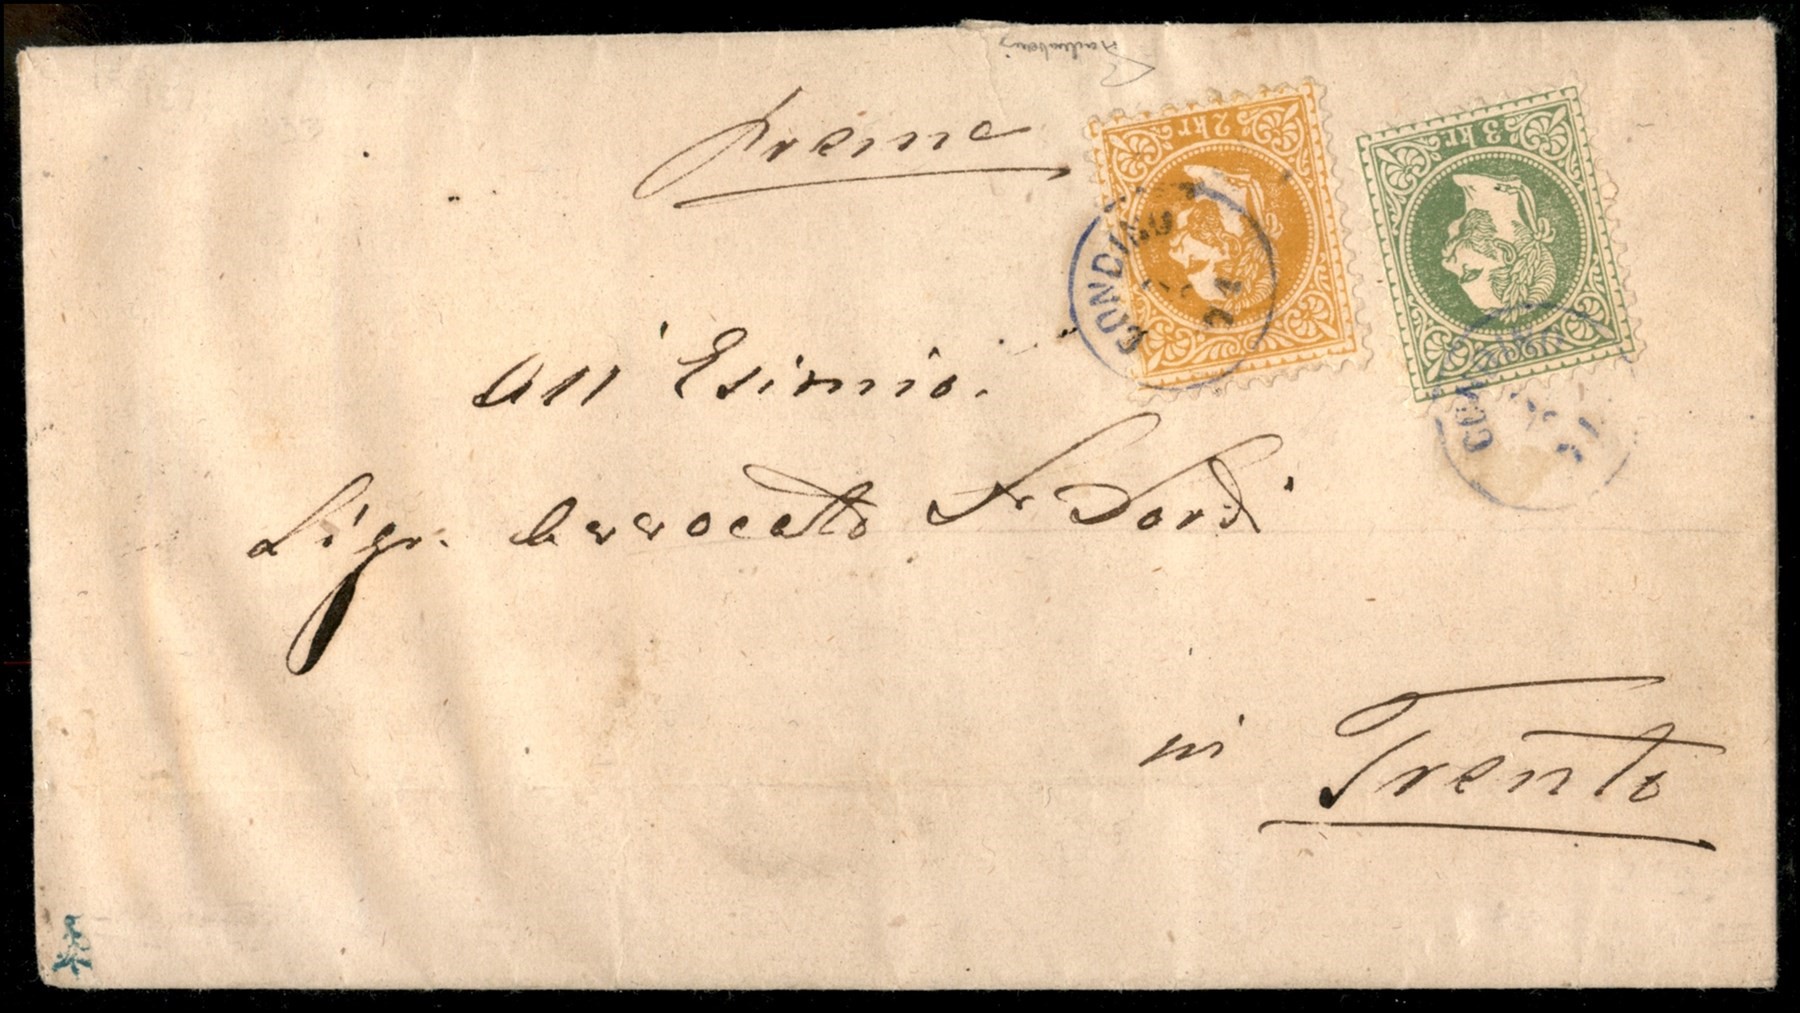 preme
2 kr.
3 kr.
CONDINO
All' Esimio.
Sigr. Avvocato Dr Dordi
in Trento